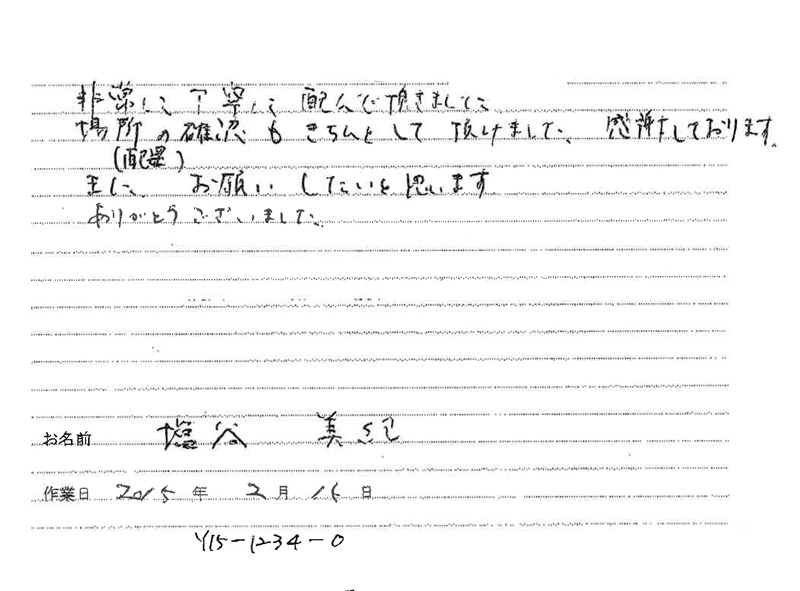 非常に丁寧に配んで頂きました
場所の確認もきちんとして頂けました、感謝しております。
(配置)
また、お願いしたいと思います
ありがとうございました。
お名前 塩谷 美紀
作業日 2015 年 2 月 16 日
Y15-1234-0